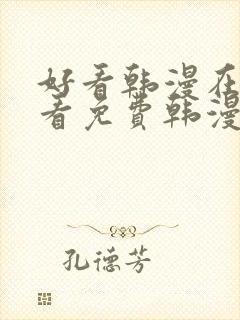 好看韩漫在
看免费韩漫
孔德芳